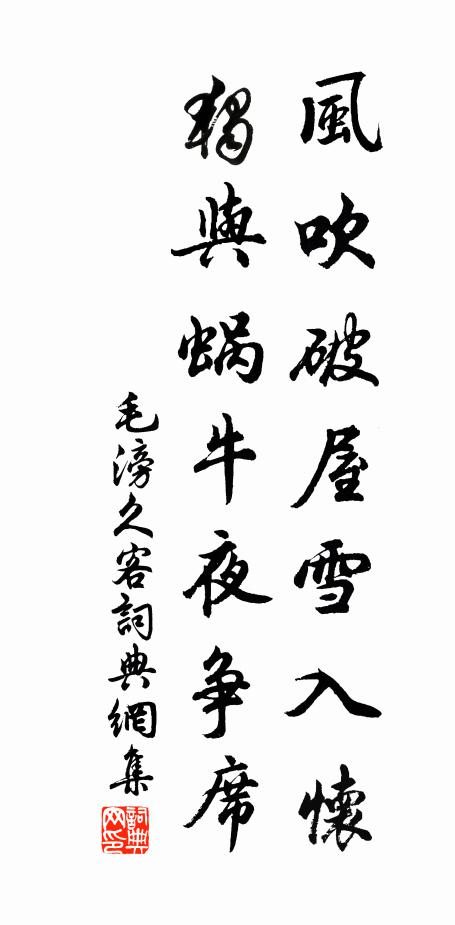 風吹破屋雪入懷
獨與蝸牛夜爭席
毛滂久客詞典網集
詞典网印